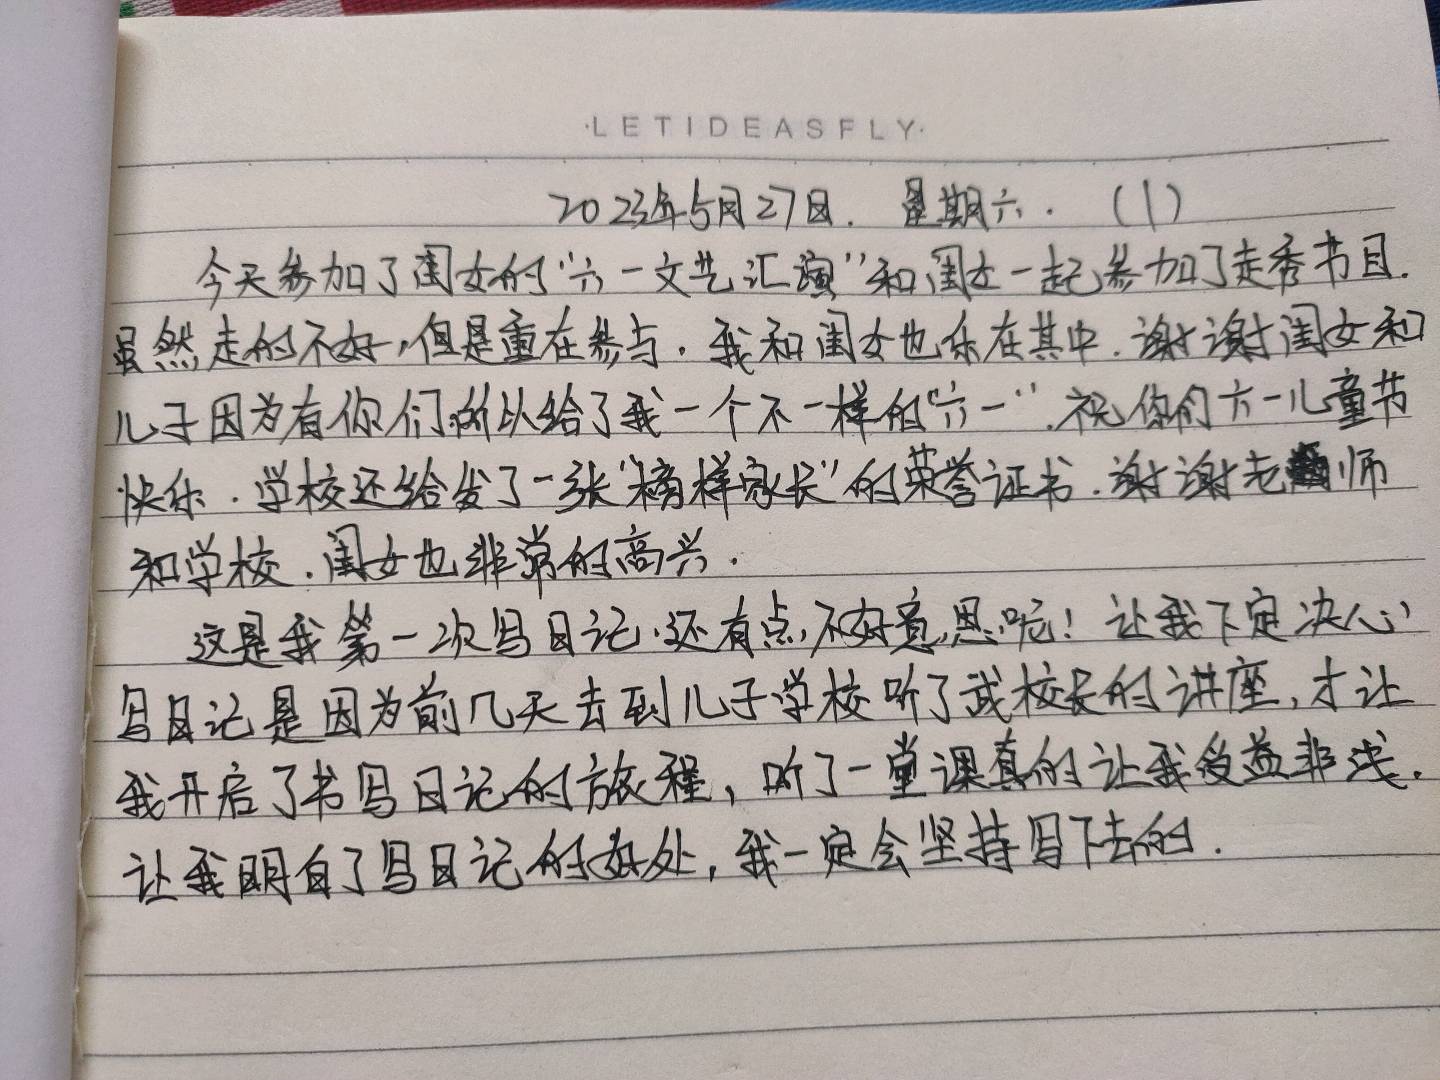 ·LETIDEASFLY·
2023年5月27日. 星期六. (1)
今天参加了闺女的“六一文艺汇演”和闺女一起参加了走秀书目.
虽然走的不好,但是重在参与.我和闺女也乐在其中.谢谢闺女和
儿子因为有你们所以给了我一个不一样的“六一”.祝你们六一儿童节
快乐.学校还给发了一张“榜样家长”的荣誉证书.谢谢老师
和学校.闺女也非常的高兴.
这是我第一次写日记.还有点不好意思呢!让我下定决心
写日记是因为前几天去到儿子学校听了武校长的讲座,才让
我开启了书写日记的旅程,听了一堂课真的让我受益非浅.
让我明白了写日记的好处,我一定会坚持写下去的.